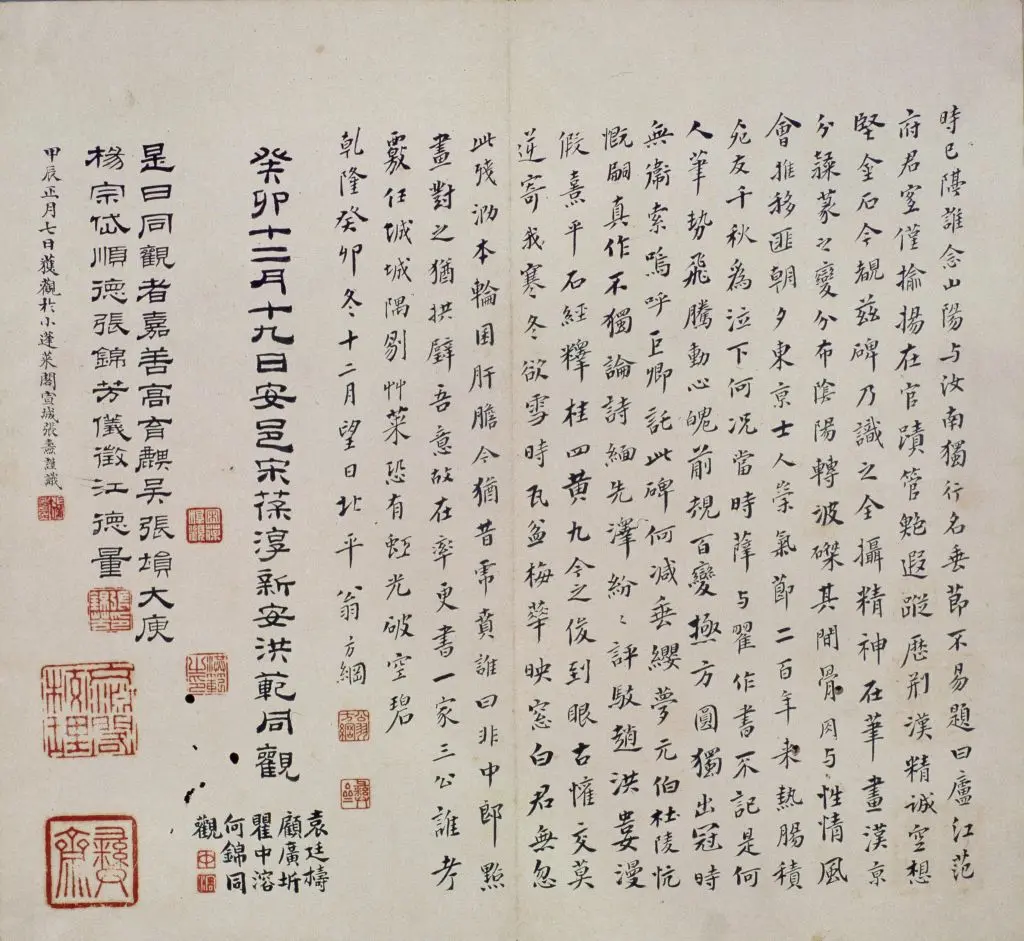 時已隔誰念山陽与汝南獨行名垂節不易題曰廬江范
府君室僅揄揚在官蹟管鮑遐蹤歷荆漢精誠空想
堅金石今覩茲碑乃識之全攝精神在筆畫漢京
分隸蒙之變分布陰陽轉波磔其間骨肉与性情風
會推移匪朝夕東京士人崇氣節二百年来熱腸積
死友千秋為泣下何况當時薛与翟作書不記是何
人筆勢飛騰動心魄前規百變極方圓獨出冠時
無衛索嗚呼巨卿託此碑何減垂纓夢元伯杜陵忼
慨嗣真作不獨論詩緬先澤紛〻評駮趙洪婁漫
假熹平石經釋桂四黄九今之俊到眼古懽交莫
逆寄我寒冬欲雪時瓦盆梅華映窓白君無忽
此殘泐本輪囷肝膽今猶昔虎賁誰曰非中郎點
畫對之猶拱璧吾意故在率更書一家三公誰考
覈任城城隅剔艸萊恐有虹光破空碧
乾隆癸卯冬十二月望日北平翁方綱
翁方綱
彝齋
癸卯十二月十九日安邑宋葆淳新安洪範同觀
袁廷檮
顧廣圻
瞿中溶
何錦同
觀
是日同觀者嘉善高育麒吴張塤大庾
楊宗岱順德張錦芳儀徵江德量
甲辰正月七日獲觀於小蓬萊閣宣城張燾謹識
彝齋